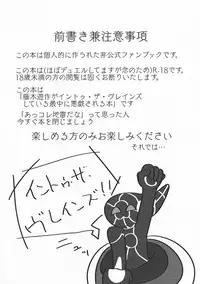 前書き兼注意事項
この本は個人的に作られた非公式ファンブックです。
この本は(ほぼデュエルしてますが念のため)R-18です。
18歳未満の方の閲覧は固くお断りいたします。
「藤木遊作がイントゥ・ザ・ヴレインズ
している最中に悪戯される本」です
「あっコレ地雷だな」って思った人
今すぐ本を閉じましょう
楽しめる方のみお楽しみください
それでは…
イントゥ・ザ・
ヴレインズ!!
ニュッ